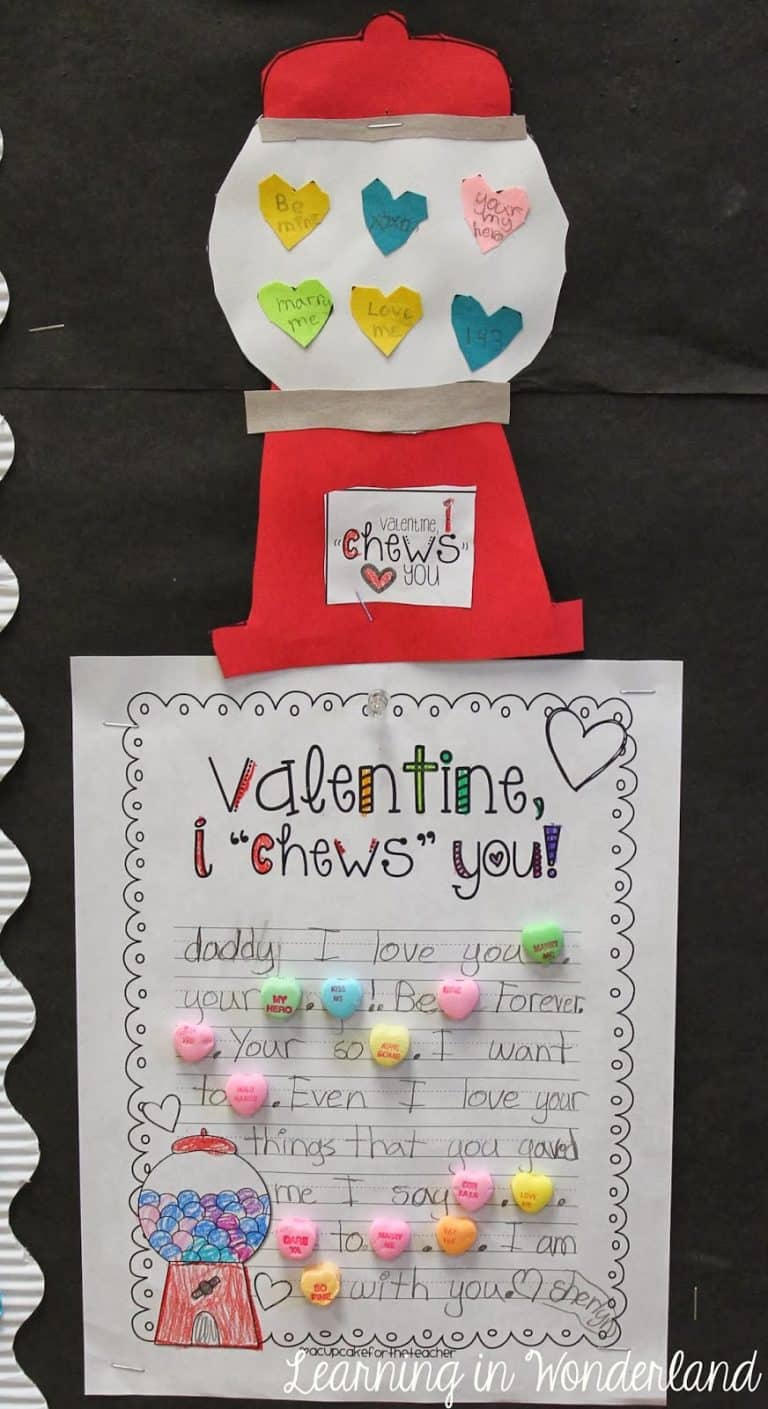 Be mine
xoxo
your my hero
marry me
Love me
143
valentine, i
"chews"
you
valentine,
i "chews" you!
daddy I love you MARRY ME.
your MY HERO. KISS ME!. Be MINE Forever.
. Your so . I want
to HOLD HANDS. Even I love your
things that you gaved
me I say . LOVE ME.
DARE YA to MARRY ME. . I am
SO FINE with you. sherlyn
©acupcakefortheteacher
Learning in Wonderland